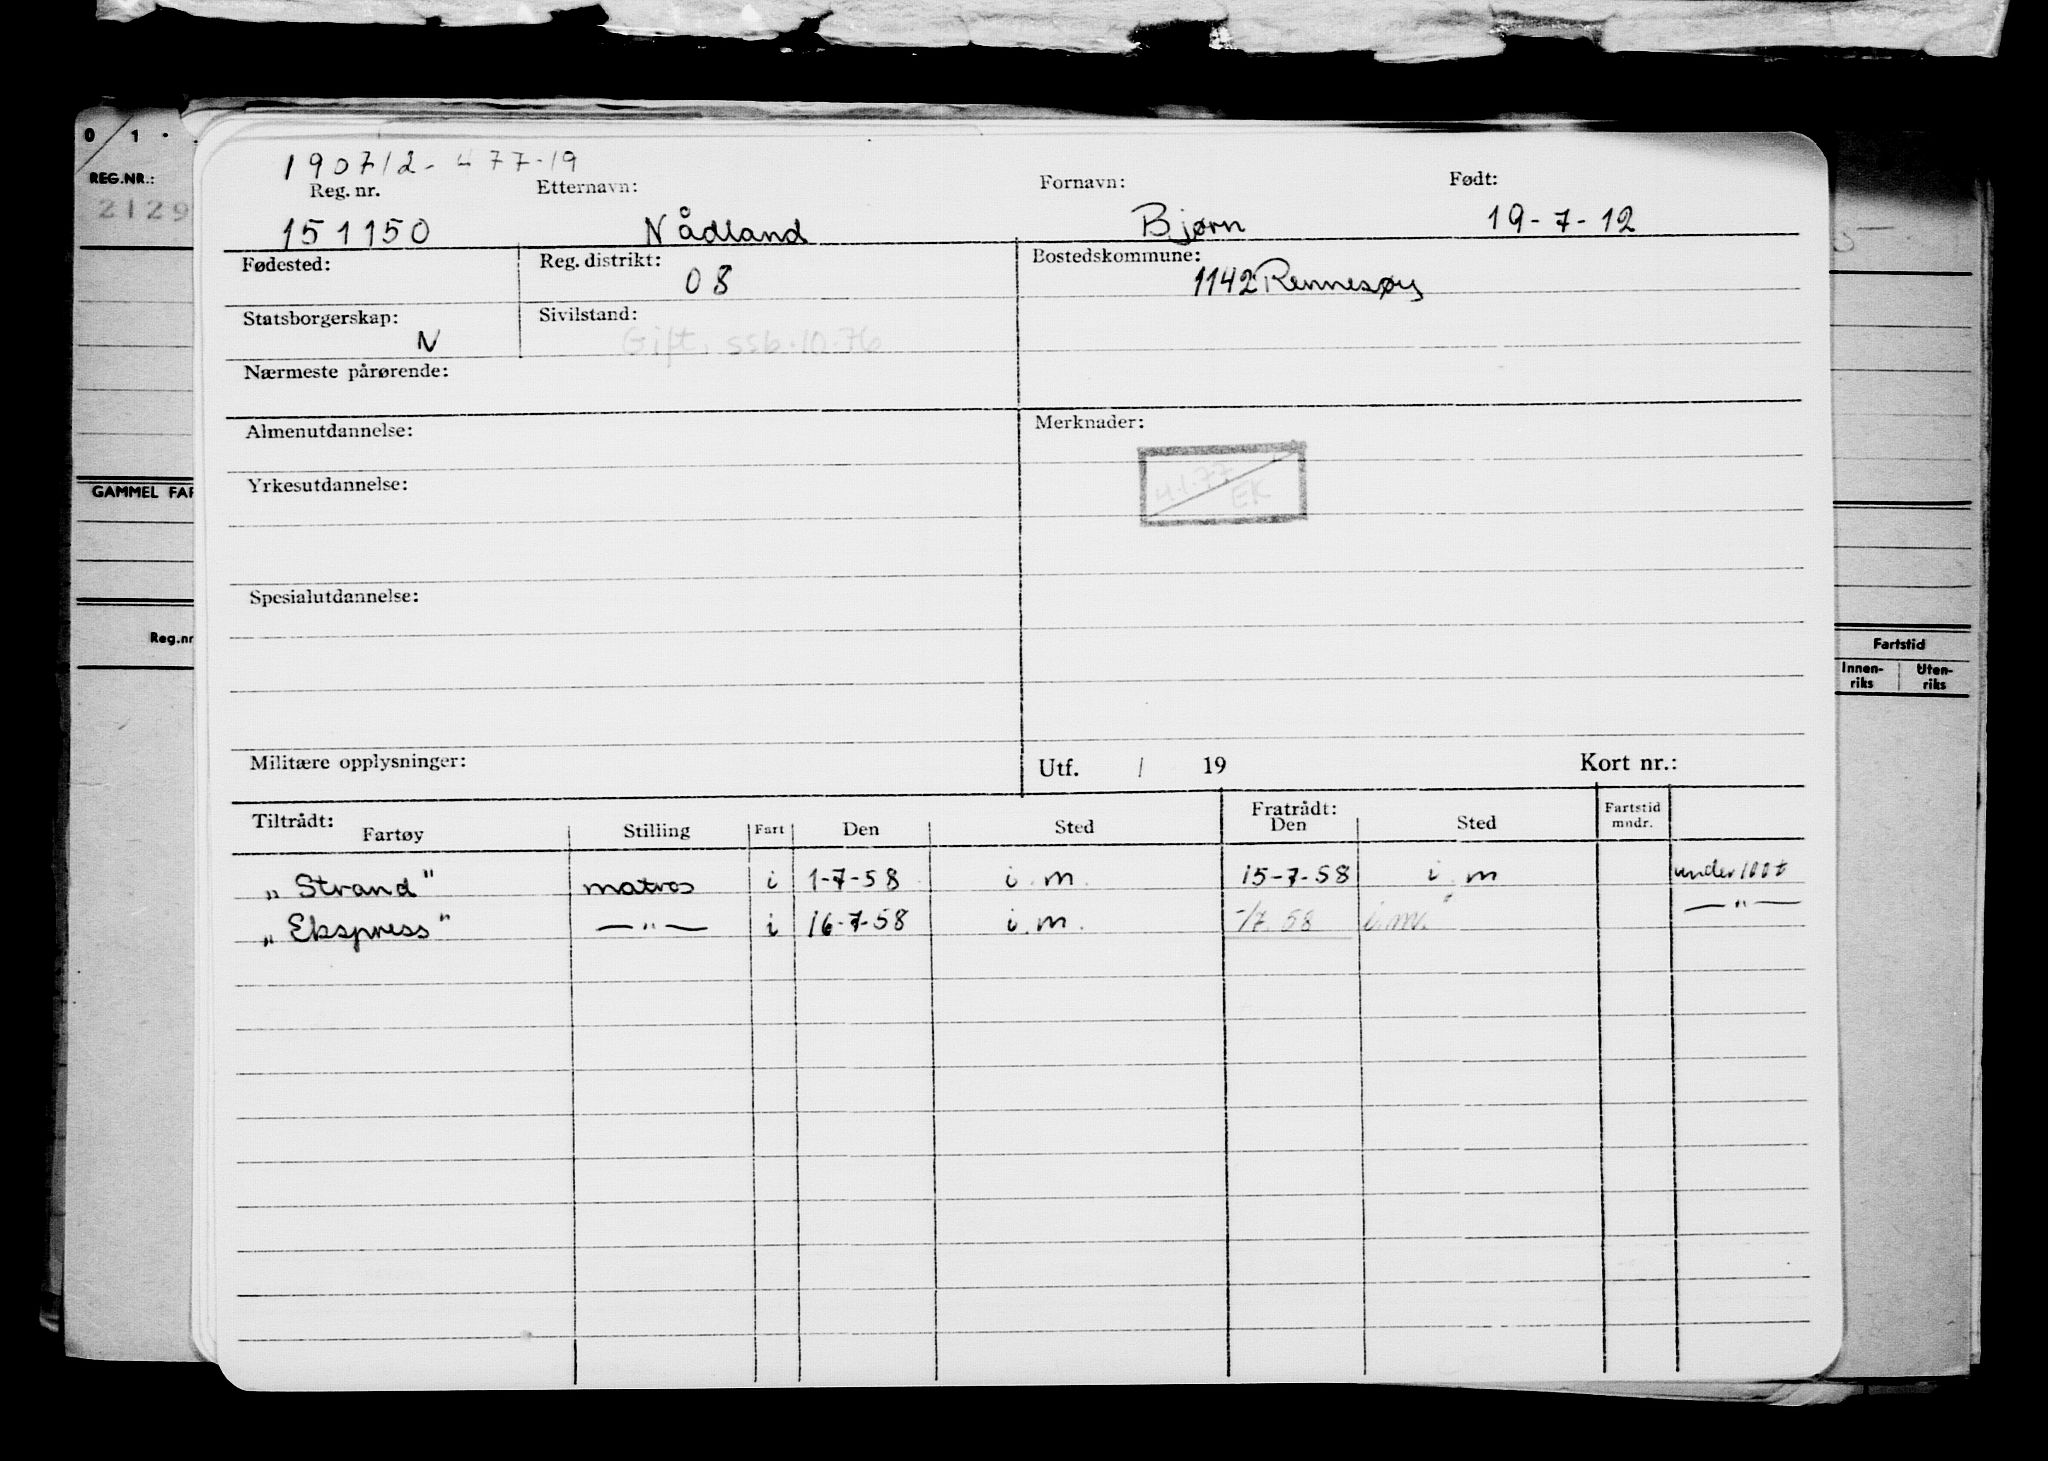 190712-47719
Reg. nr. Etternavn: Fornavn: Født:
151150 Nådland Bjørn 19-7-12
Fødested: Reg. distrikt: 08 Bostedskommune: 1142 Rennesøy
Statsborgerskap: N Sivilstand: Gift. ssb.10.76
Nærmeste pårørende:
Almenutdannelse: Merknader:
4.1.77 EK
Yrkesutdannelse:
Spesialutdannelse:
Militære opplysninger: Utf. / 19 Kort nr.:
Tiltrådt: Fratrådt: Fartstid mndr.
Fartøy Stilling Fart Den Sted Den Sted
„Strand" matros i 1-7-58 i.m. 15-7-58 i.m under 100t
„Ekspress" —"— i 16-7-58 i.m. -/7 58 i.m. —"—
0/1.
REG.NR.:
2129
GAMMEL FAR
Reg.nr
Fartstid
Innen-riks Uten-riks